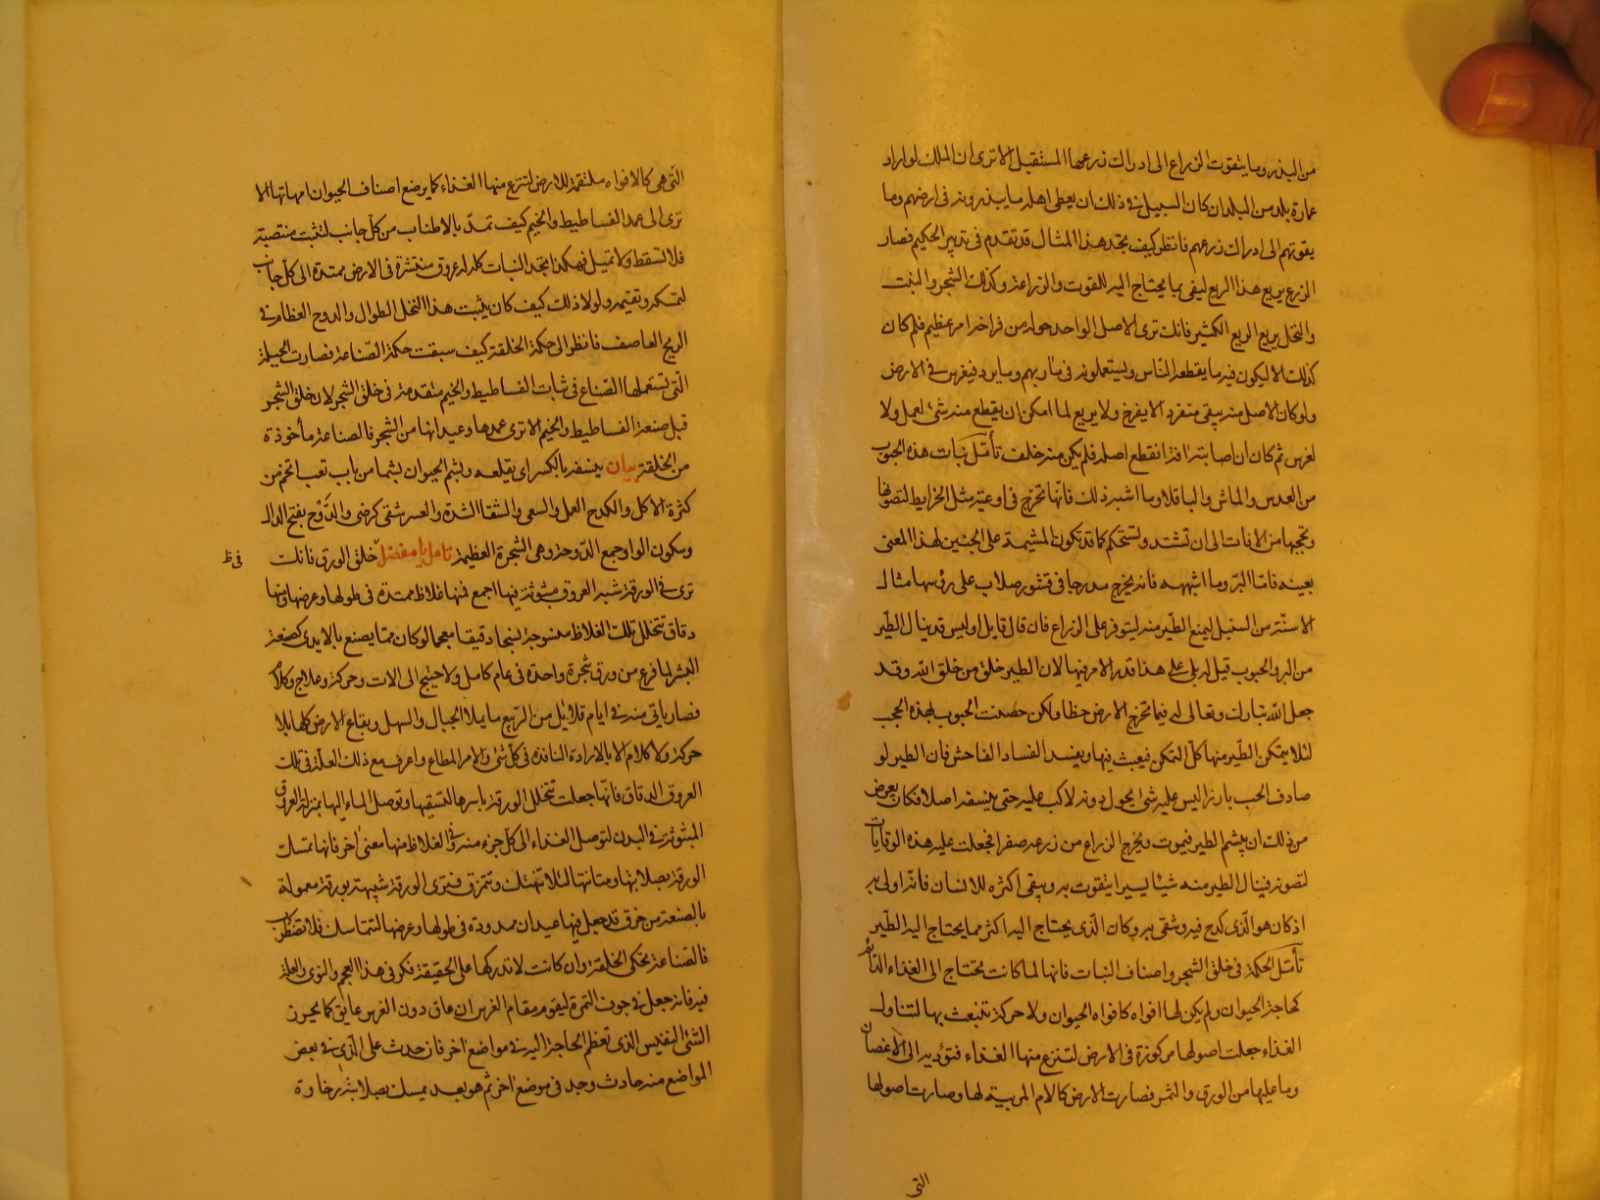 من البذر وما يتقوت الزراع الى ادراك زرعها المستقبل الا ترى ان الملك لو اراد
عمارة بلد من البلدان كان السبيل فى ذلك ان يعطى اهله ما يبذرونه فى ارضهم وما
يقوتهم الى ادراك زرعهم فانظر كيف تجد هذا المثال قد تقدم فى تدبير الحكيم فصار
الزرع يريع هذا الريع ليفى بما يحتاج اليه للقوت والزراعة وكذلك الشجر والنبت
والنخل يريع الريع الكثير فانك ترى الاصل الواحد حوله من فراخه امر عظيم فلم كان
كذلك الا ليكون فيه ما يقطعه النّاس ويستعملونه فى مأربهم وما يرد فيغرس فى الارض
ولو كان الاصل منه يبقى منفردا لا يفرخ ولا يريع لما امكن ان يقطع منه شئ لعمل ولا
لغرس ثم كان ان اصابته افة انقطع اصله فلم يكن منه خلف تأمّل نبات هذه الحبوب
من العدس والماش والباقلا وما اشبه ذلك فانّها تخرج فى اوعية مثل الخرايط لتصونها
وتحجبها من الافات الى ان تشتد وتستحكم كما قد تكون المشيمة على الجنين لهذا المعنى
بعينه فامّا البرّ وما اشبهه فانه يخرج مدرجا فى قشور صلاب على رؤسها مثال
الاسنّة من السنبل ليمنع الطّير منه ليتوفر على الزراع فان قال قايل اوليس قد ينال الطّير
من البر والحبوب قيل له بلى على هذا قدر الامر فيها لان الطير خلق من خلق الله وقد
جعل الله تبارك وتعالى له فيما تخرج الارض حظا ولكن حصنت الحبوب بهذه الحجب
لئلا يتمكن الطّير منها كلّ التمكن فيعبث فيها ويفسد الفساد الفاحش فان الطير لو
صادف الحب بارزا ليس عليه شئ يحول دونه لاكب عليه حتى ينسفه اصلا فكان يعرض
من ذلك ان يبشم الطير فيموت ويخرج الزراع من زرعه صفرا فجعلت عليه هذه الوقايات
لتصونه فينال الطير منه شيئا يسيرا يتقوت به ويبقى اكثره للانسان فانّه اولى به
اذ كان هو الّذى كدح فيه وشقى به وكان الّذى يحتاج اليه اكثر مما يحتاج اليه الطّير
تأمّل الحكمة فى خلق الشجر واصناف النبات فانها لما كانت تحتاج الى الغذاء الدّائم
كحاجة الحيوان ولم يكن لها افواه كافواه الحيوان ولا حركة تنبعث بها لتناول
الغذاء جعلت اصولها مركوزة فى الارض لتنزع منها الغذاء فتؤديه الى الاغصان
وما عليها من الورق والثمر فصارت الارض كالام المربية لها وصارت اصولها
التى
الّتى هى كالافواه ملتقمة للارض لتنزع منها الغذاء كما يرضع اصناف الحيوان امهاتها الا
ترى الى عمد الفساطيط والخيم كيف تمدّ بالاطناب من كلّ جانب لتثبت منتصبة
فلا تسقط ولا تميل فهكذا تجد النبات كله له عروق منتشرة فى الارض ممتدة الى كلّ جانب
لتمسكه وتقيمه ولولا ذلك كيف كان يثبت هذا النخل الطوال والدوح العظام فى
الريح العاصف فانظر الى حكمة الخلقة كيف سبقت حكمة الصّناعة فصارت الحيلة
الّتى تستعملها الصّناع فى ثبات الفساطيط والخيم متقدمة فى خلق الشجر لان خلق الشجر
قبل صنعة الفساطيط والخيم الا ترى عمدها وعيدانها من الشجر فالصناعة مأخوذة
من الخلقة بيان ينسفه بالكسر اى يقلعه وبشم الحيوان بشما من باب تعب اتخم من
كثرة الاكل والكدح العمل والسعى والشقاء الشدة والعسر شقى كرضى والدَّوْح بفتح الدال
وسكون الواو جمع الدّوحة وهى الشجرة العظيمة تامل يا مفضل خلق الورق فانك
فى ظ
ترى فى الورقة شبه العروق مبثوثة فيها اجمع فمنها غلاظ ممتدة فى طولها وعرضها ومنها
دقاق تتخلل تلك الغلاظ منسوجة نسجا دقيقا معجما لو كان ممّا يصنع بالايدى كصنعة
البشر لما فرغ من ورق شجرة واحدة فى عام كامل ولاحتيج الى الات وحركة وعلاج وكلام
فصار ياتى منه فى ايام قلائل من الرّبيع ما يملا الجبال والسهل وبقاع الارض كلها بلا
حركة ولا كلام الا بالارادة النافذة فى كلّ شئ والامر المطاع واعرف مع ذلك العلّة فى تلك
العروق الدقاق فانّها جعلت تتخلل الورقة باسرها لتسقيها وتوصل الماء اليها بمنزلة العروق
المبثوثة فى البدن لتوصل الغذاء الى كلّ جزء منه وفى الغلاظ منها معنى اخر فانها تمسك
الورقة بصلابتها ومتانتها لئلا تنهتك وتتمزق فترى الورقة شبيهة بورقة معمولة
بالصنعة من خرق قد جعل فيها عيدان ممدودة فى طولها وعرضها لتتماسك فلا تضطرب
فالصناعة تحكى الخلقة وان كانت لا تدركها على الحقيقة فكر فى هذا العجم والنوى والعلة
فيه فانه جعل فى جوف الثمرة ليقوم مقام الغرس ان عاق دون الغرس عايق كما يحرز
الشئ النفيس الذى تعظم الحاجة اليه فى مواضع اخر فان حدث على الّذى فى بعض
المواضع منه حادث وجد فى موضع اخر ثم هو بعد يمسك بصلابته رخاوة